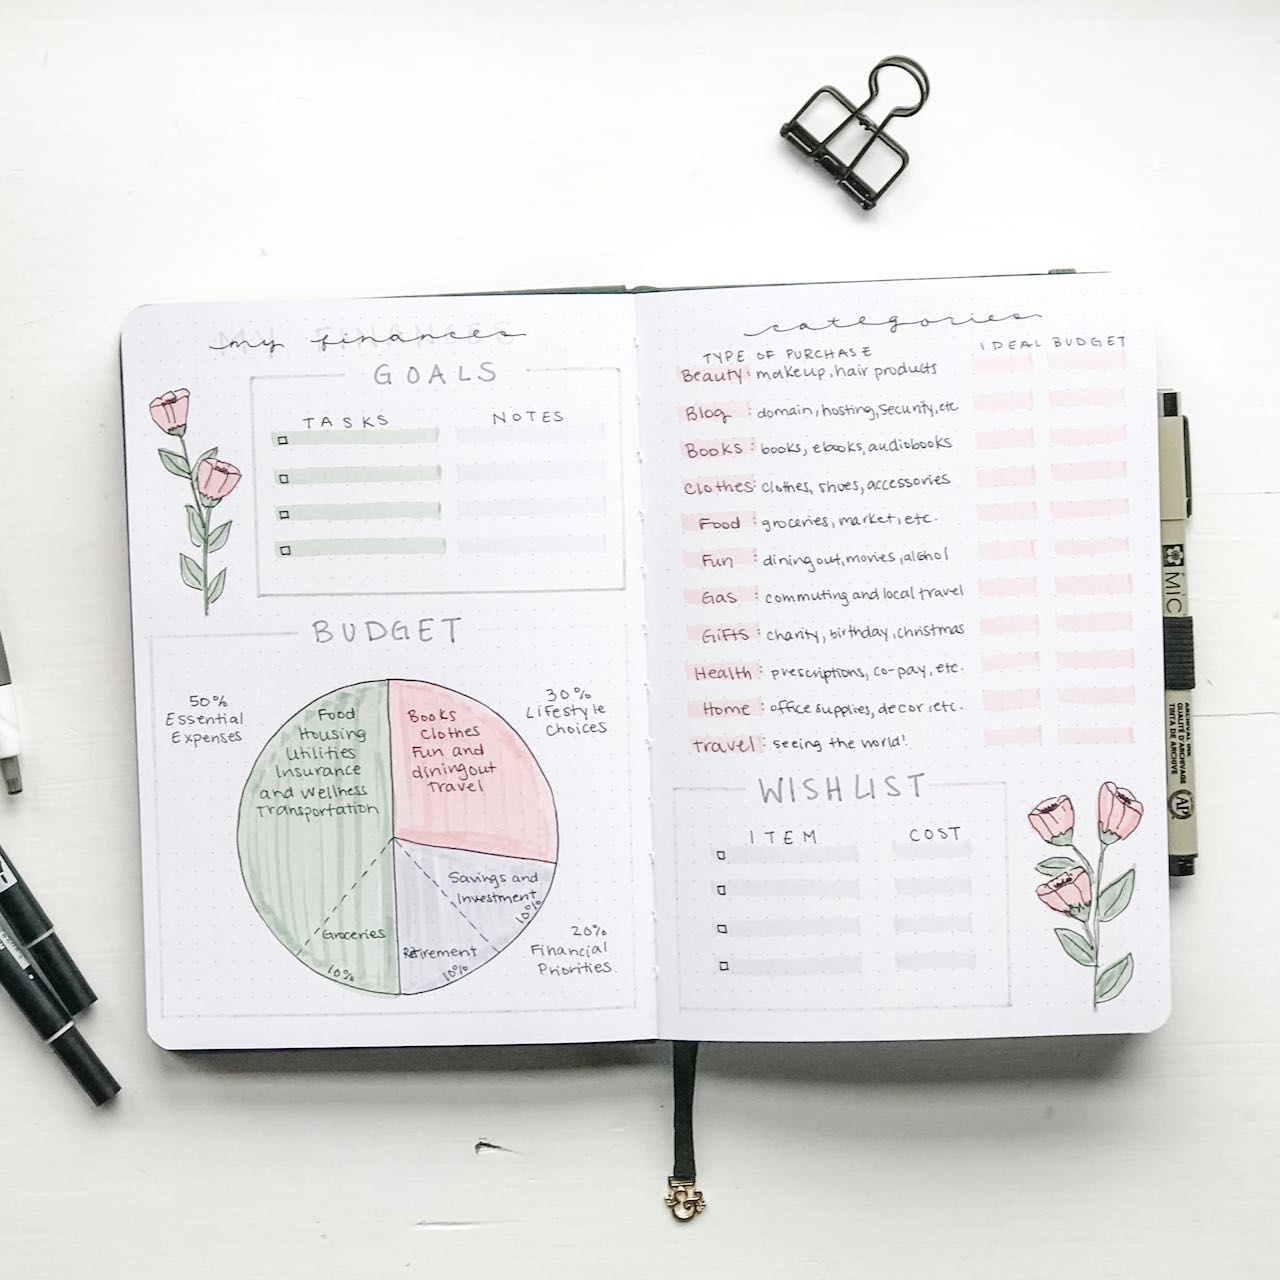 my finances
GOALS
TASKS
NOTES
BUDGET
50%
Essential
Expenses
Food
Housing
Utilities
Insurance
and Wellness
Transportation
Groceries
10%
Books
Clothes
Fun and
dining out
Travel
30%
Lifestyle
Choices
Savings and
Investment
10%
Retirement
10%
20%
Financial
Priorities
categories
TYPE OF PURCHASE
IDEAL BUDGET
Beauty: makeup, hair products
Blog: domain, hosting, security, etc
Books: books, ebooks, audiobooks
Clothes: clothes, shoes, accessories
Food: groceries, market, etc.
Fun: dining out, movies, alcohol
Gas: commuting and local travel
Gifts: charity, birthday, christmas
Health: prescriptions, co-pay, etc.
Home: office supplies, decor, etc.
travel: seeing the world!
WISHLIST
ITEM
COST
MIC
ARCHIVAL INK
QUALITÉ D'ARCHIVAGE
TINTA DE ARCHIVE
AP